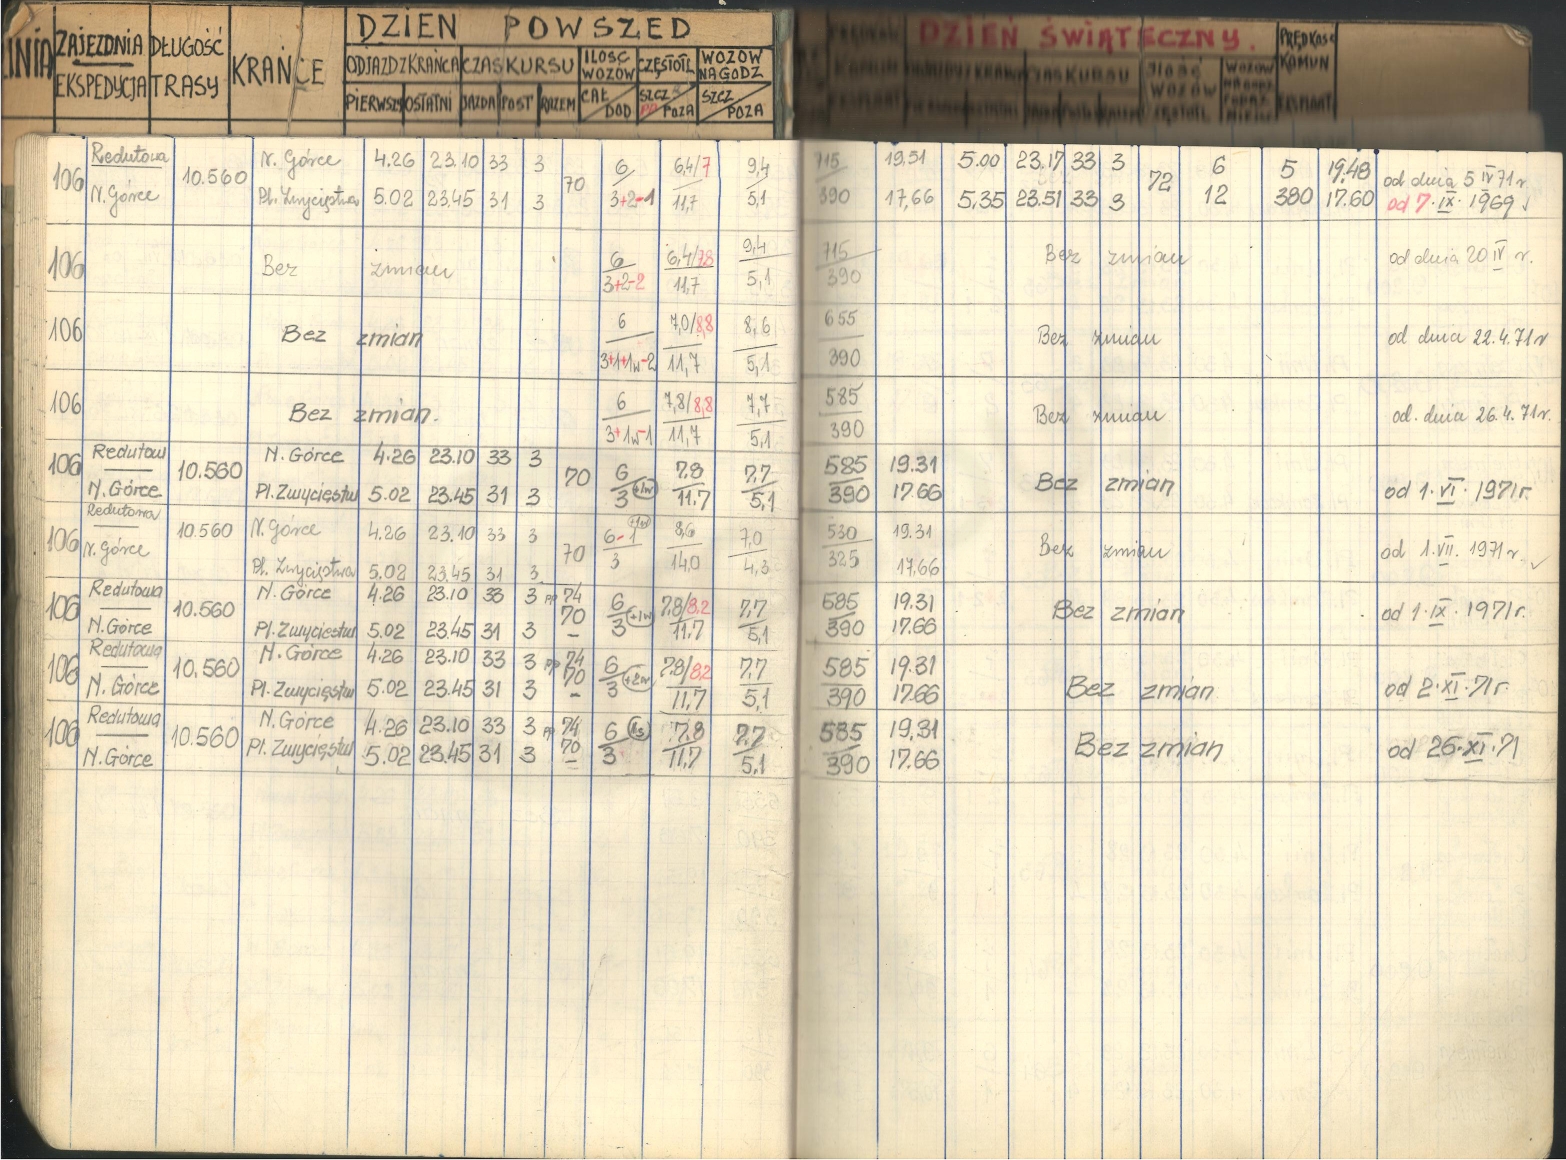 DZIEŃ POWSZED
DZIEŃ ŚWIĄTECZNY.
LINIA ZAJEZDNIA DŁUGOŚĆ KRAŃCE ODJAZDZKRAŃCA CZAS KURSU ILOŚĆ WOZÓW CZĘSTOTL WOZÓW NA GODZ PRĘDKOŚĆ KOMUN
EKSPEDYCJA TRASY PIERWSZY OSTATNI JAZDA POST RAZEM CAŁ DOD SZCZ POZA SZCZ POZA EKSPLOAT
106 Redutowa 10.560 N. Górce 4.26 23.10 33 3 70 6 6,4/7 9,4 715 19.51 5.00 23.17 33 3 72 6 5 19.48 od dnia 5 IV 71 r
N. Górce Pl. Zwycięstwa 5.02 23.45 31 3 3+2-1 11,7 5,1 390 17,66 5,35 23.51 33 3 12 380 17.60 od 7.IX.1969
106 Bez zmian 6 6,4/7,8 9,4 715 Bez zmian od dnia 20 IV r.
3+2-2 11,7 5,1 390
106 Bez zmian 6 7,0/8,8 8,6 655 Bez zmian od dnia 22.4.71r
3+1+1w-2 11,7 5,1 390
106 Bez zmian. 6 7,8/8,8 7,7 585 Bez zmian od. dnia 26.4.71r.
3+1w-1 11,7 5,1 390
106 Redutow 10.560 N. Górce 4.26 23.10 33 3 70 6 7.8 7.7 585 19.31 Bez zmian od 1.VI.1971r.
N. Górce Pl. Zwycięstw 5.02 23.45 31 3 3 +1w 11.7 5,1 390 17.66
106 Redutowa 10.560 N. Górce 4.26 23.10 33 3 70 6-1 +1w 8,6 7,0 530 19.31 Bez zmian od 1.VII.1971r.
N. Górce Pl. Zwycięstwa 5.02 23.45 31 3 3 14,0 4,3 325 17,66
106 Redutowa 10.560 N. Górce 4.26 23.10 33 3 pp 74 6 7.8/8.2 7.7 585 19.31 Bez zmian od 1.IX.1971r.
N. Górce Pl. Zwycięstw 5.02 23.45 31 3 70 3 +1w 11.7 5,1 390 17.66
106 Redutowa 10.560 N. Górce 4.26 23.10 33 3 pp 74 6 7.8/8.2 7.7 585 19.31 Bez zmian od 2.XI.71r.
N. Górce Pl. Zwycięstw 5.02 23.45 31 3 70 3 +2w 11,7 5.1 390 17.66
106 Redutowa 10.560 N. Górce 4.26 23.10 33 3 pp 74 6 1s 7.8 7.7 585 19,31 Bez zmian od 26.XI.71
N. Górce Pl. Zwycięstw 5.02 23.45 31 3 70 3 11,7 5,1 390 17.66